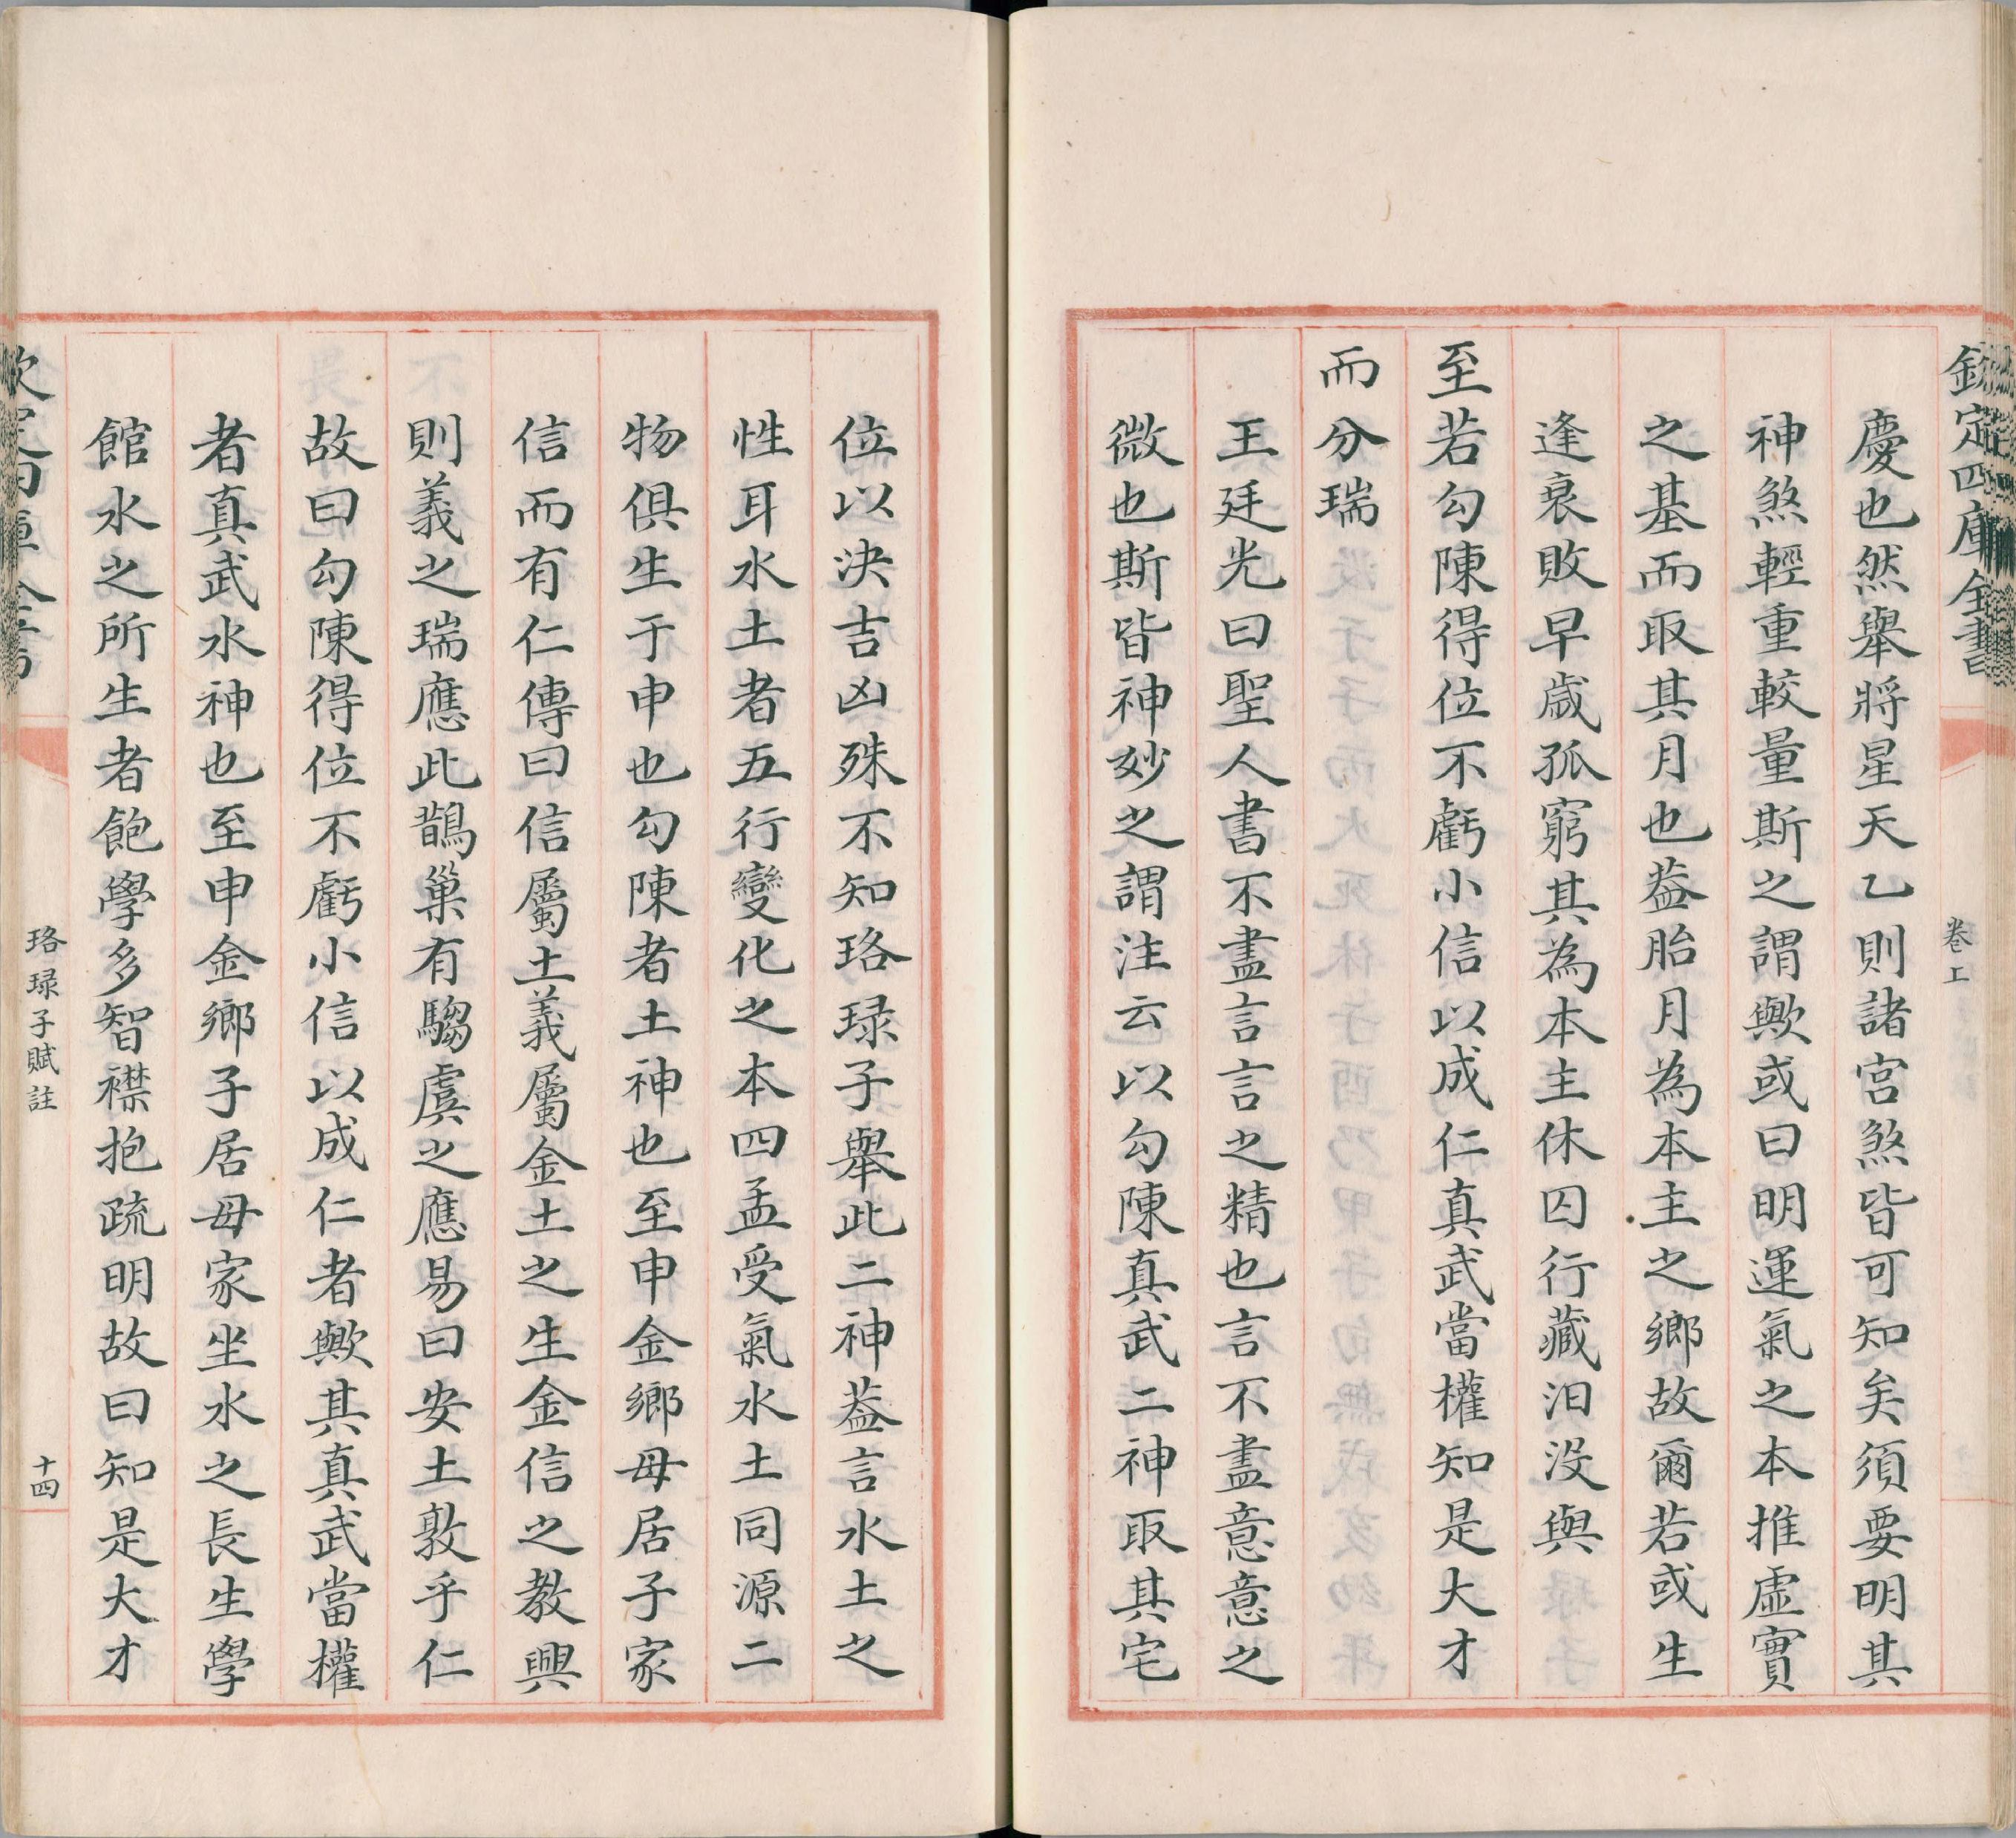 欽定四庫全書
卷上
慶也然舉將星天乙則諸宫煞皆可知矣須要明其
神煞輕重較量斯之謂歟或曰明運氣之本推虚實
之基而取其月也葢胎月為本主之鄉故爾若或生
逢衰敗早歲孤窮其為本主休囚行藏汨没與
至若勾陳得位不虧小信以成仁真武當權知是大才
而分瑞
王廷光曰聖人書不盡言言之精也言不盡意意之
微也斯皆神妙之謂注云以勾陳真武二神取其宅
位以決吉凶殊不知珞琭子舉此二神葢言水土之
性耳水土者五行變化之本四孟受氣水土同源二
物俱生于申也勾陳者土神也至申金鄉母居子家
信而有仁傳曰信屬土義屬金土之生金信之教興
則義之瑞應此鵲巢有騶虞之應易曰安土敦乎仁
故曰勾陳得位不虧小信以成仁者歟其真武當權
者真武水神也至申金鄉子居母家坐水之長生學
館水之所生者飽學多智襟抱疏明故曰知是大才
珞琭子賦註
十四